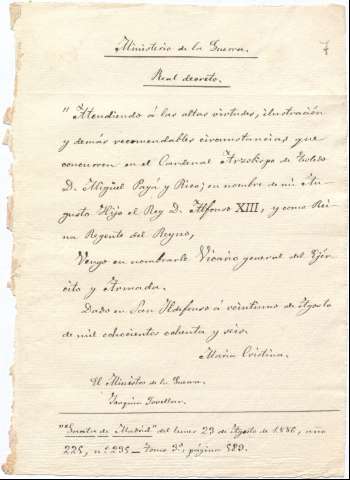 7
Ministerio de la Guerra.
Real decreto.
"Atendiendo á las altas virtudes, ilustración
y demás recomendables circunstancias que
concurren en el Cardenal Arzobispo de Toledo
D. Miguel Payá y Rico; en nombre de mi Au-
gusto Hijo el Rey D. Alfonso XIII, y como Rei-
na Regente del Reyno,
Vengo en nombrarle Vicario general del Ejér-
cito y Armada.
Dado en San Ildefonso á veintiuno de Agosto
de mil ochocientos ochenta y seis.
María Cristina.
El Ministro de la Guerra.
Joaquín Jovellar.
"Gaceta de Madrid" del lunes 23 de Agosto de 1886, año
225, nº 235 — Tomo 3º, página 589.